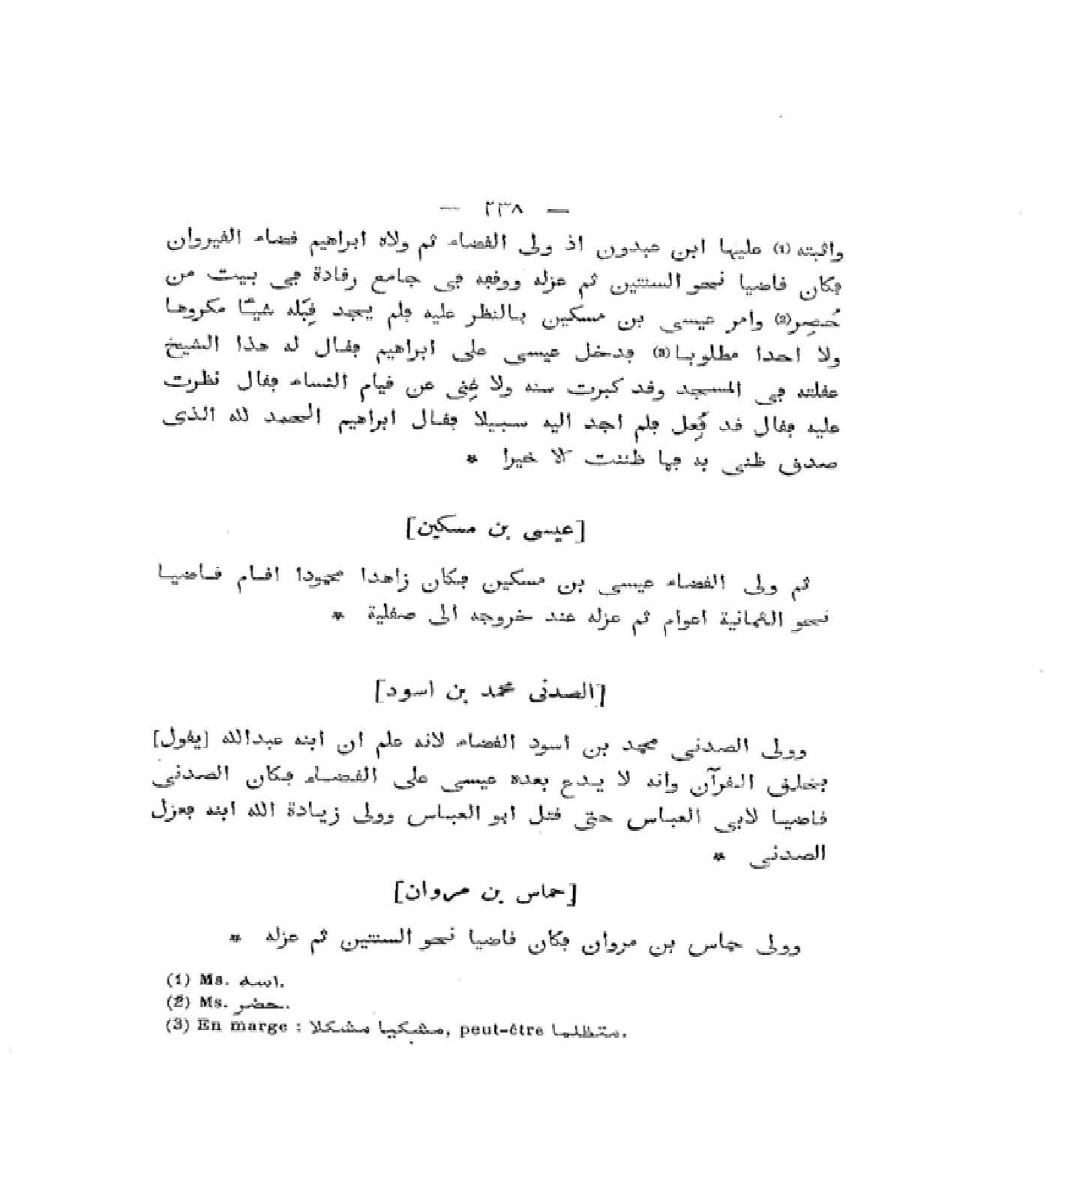 — ٢٣٨ —
واثبته (1) عليها ابن عبدون اذ ولى القضاء ثم ولاه ابراهيم قضاء القيروان
فكان قاضيا نحو السنتين ثم عزله ووقفه فى جامع رقادة فى بيت من
حُصِر(2) وامر عيسى بن مسكين بالنظر عليه فلم يجد قِبَله شيئًا مكروها
ولا احدا مطلوبا(3) فدخل عيسى على ابراهيم فقال له هذا الشيخ
عقلته فى المسجد وقد كبرت سنه ولا غِنى عن قيام النساء فقال نظرت
عليه فقال قد فُعِل فلم اجد اليه سبيلا فقال ابراهيم الحمد لله الذى
صدق ظنى به فيما ظننت الا خيرا *
[عيسى بن مسكين]
ثم ولى القضاء عيسى بن مسكين فكان زاهدا محمودا اقام قاضيا
نحو الثمانية اعوام ثم عزله عند خروجه الى صقلية *
[الصدنى محمد بن اسود]
وولى الصدنى محمد بن اسود القضاء لانه علم ان ابنه عبدالله [يقول]
بخلق القرآن وانه لا يدع بعده عيسى على القضاء فكان الصدنى
قاضيا لابى العباس حتى قتل ابو العباس وولى زيادة الله ابنه فعزل
الصدنى *
[حماس بن مروان]
وولى حماس بن مروان فكان قاضيا نحو السنتين ثم عزله *
(1) Ms. اسه.
(2) Ms. حضر.
(3) En marge : مشكيا مشكلا, peut-être متظلما.